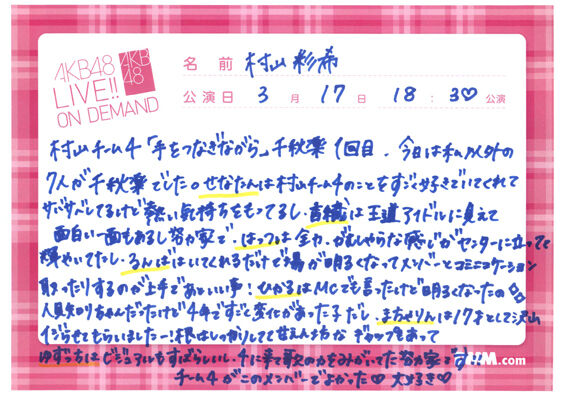 AKB48
LIVE!!
ON DEMAND
AKB
48
名前 村山 彩希
公演日 3月 17日 18:30 公演
村山チーム4「手をつなぎながら」千秋楽1回目、今日は私以外の
7人が千秋楽でした。せなたんは村山チーム4のことをすごく好きでいてくれて
サバサバしてるけど熱い気持ちをもってるし、吉橋は王道アイドルに見えて
面白い一面もあるし努力家で、はっつは全力、がむしゃらな感じがセンターに立ってて
輝いてたし、るんははいてくれるだけで場が明るくなってメンバーとコミニコケーション
取ったりするのが上手であと いい事!ひかるはMCでも言ったけど明るくなったの
人見知りちゃんだたけど4年ですごく変化があった子だし、まちゃりんは17才として沢山
イジらせてもらいましたー!根はしっかりしてて甘えん坊な ギャップもあって
ゆずっちは ビジュアルもすばらしいし、4に来て歌の力をみがいてた努力家です!!
M.com
チーム4がこのメンバーでよかった♡ 大好き♡